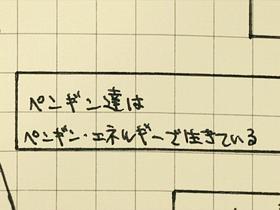 ペンギン達は
ペンギン・エネルギーで生きている